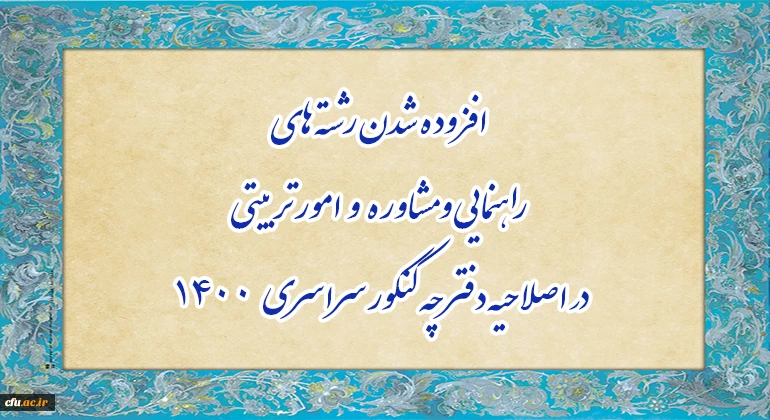 افزوده شدن رشته های
راهنمایی و مشاوره و امور تربیتی
در اصلاحیه دفترچه کنکور سراسری ۱۴۰۰
cfu.ac.ir